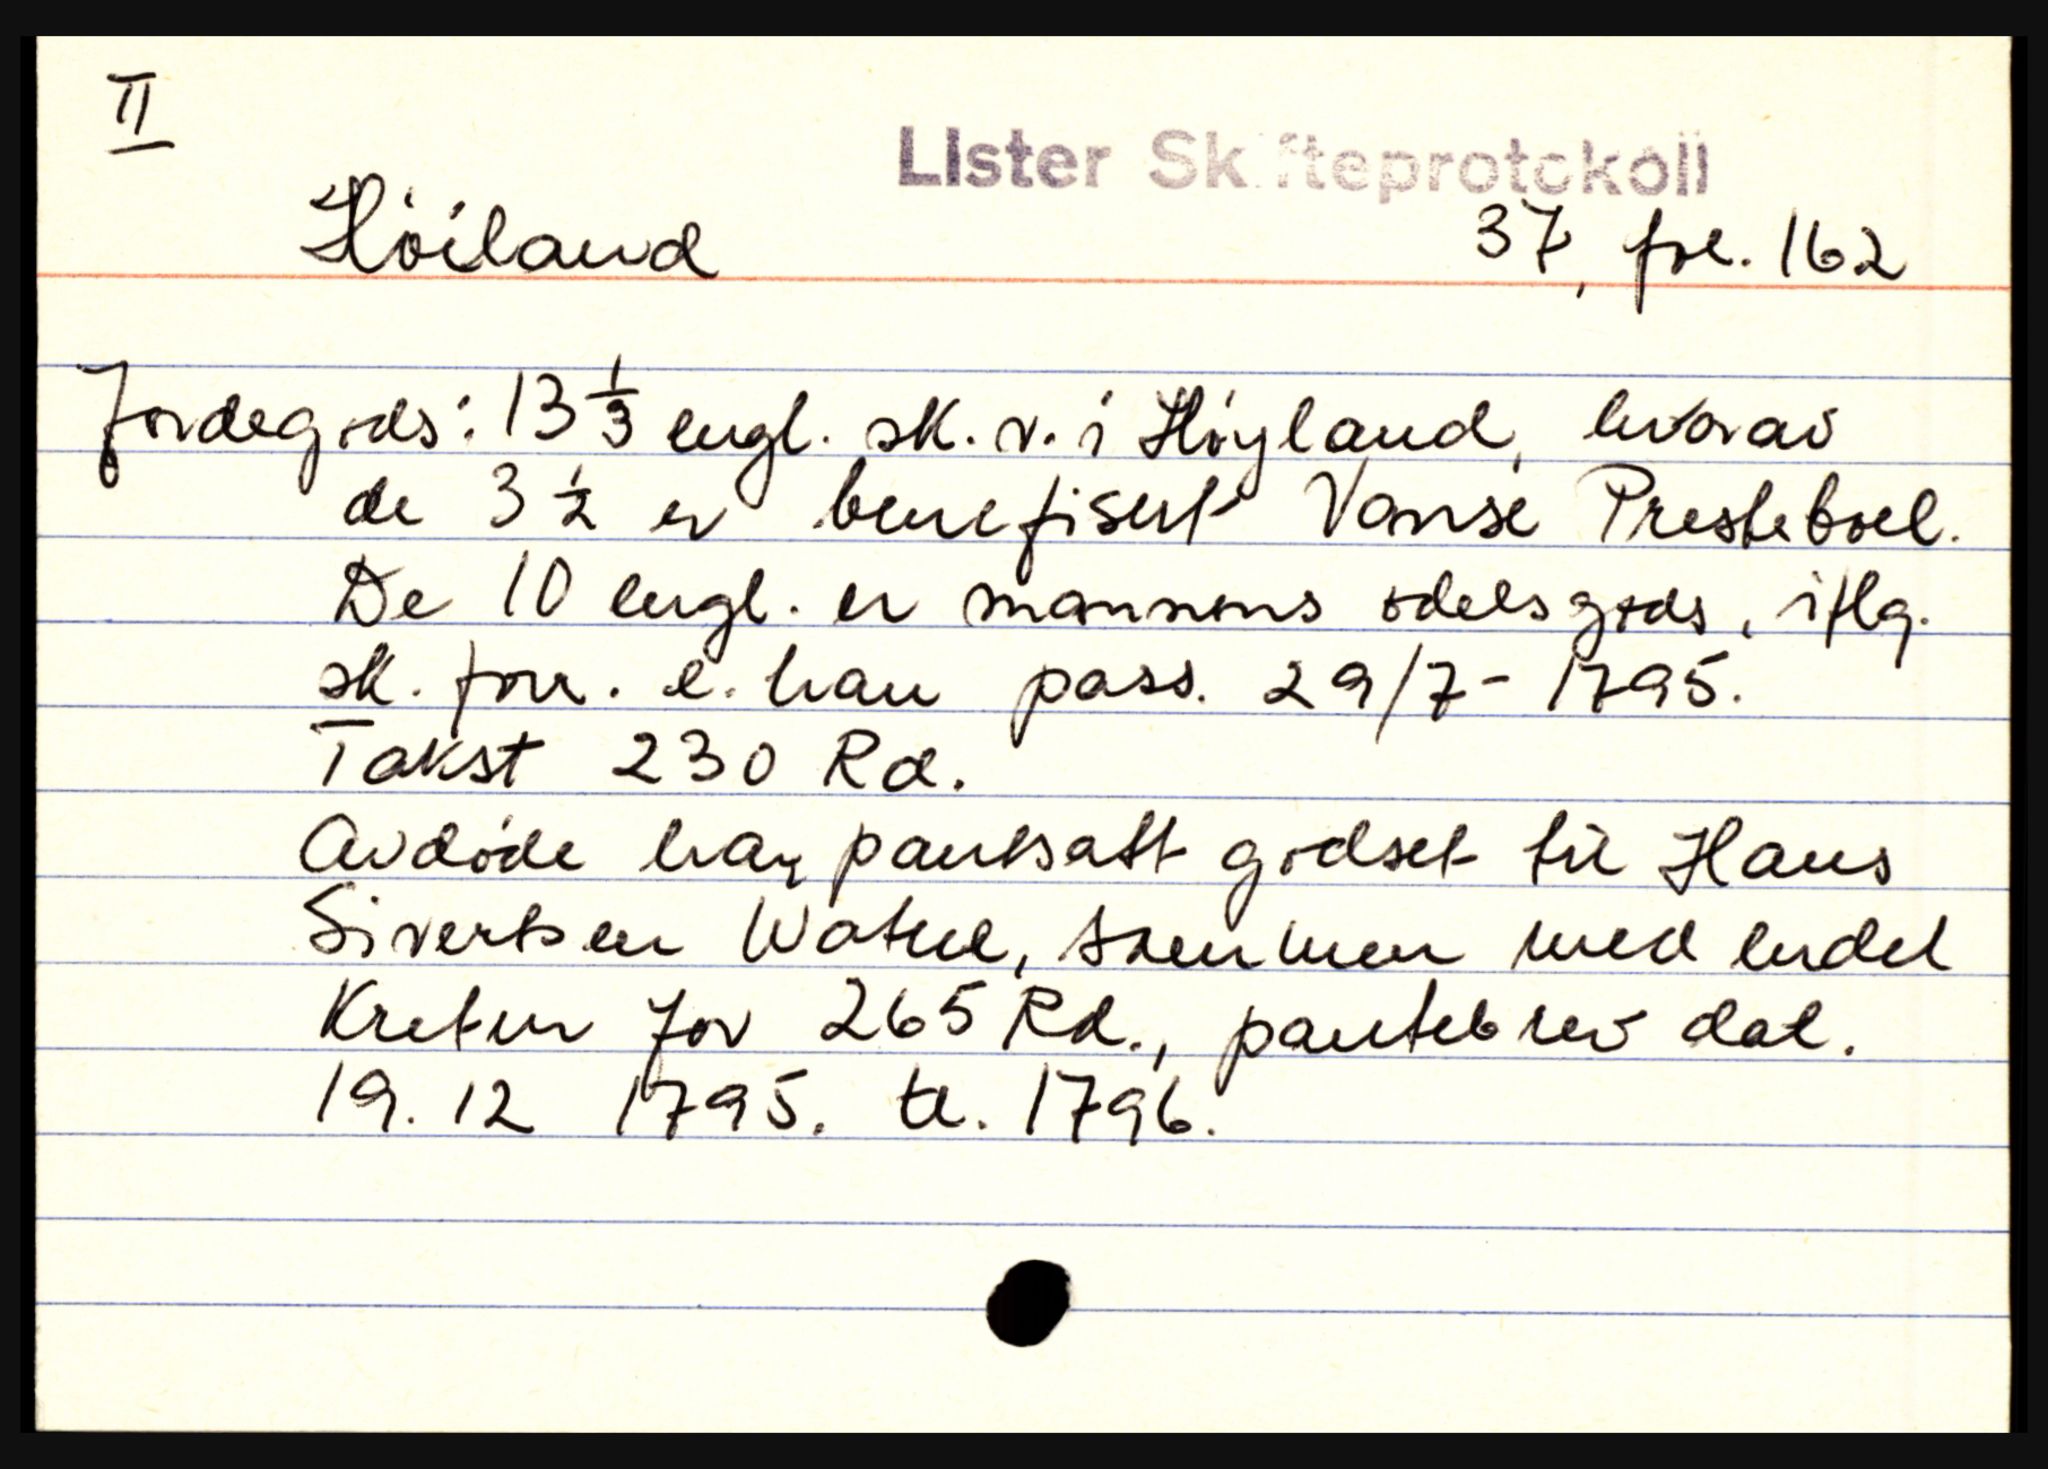 II
Lister Skifteprotokoll
Høiland 37, fol. 162
Jordegods: 13 1/3 engl. sk. v. i Høyland, hvorav
de 3 1/2 er benefisert Vanse Presteboel.
De 10 engl. er mannens odelsgods, iflg.
sk. forr. e. han pass. 29/7 - 1795.
Takst 230 Rd.
Avdøde har pantsatt godset til Hans
Sivertsen Watne, sammen med endel
Kretur for 265 Rd., pantebrev dat.
19. 12 1795. tl. 1796.